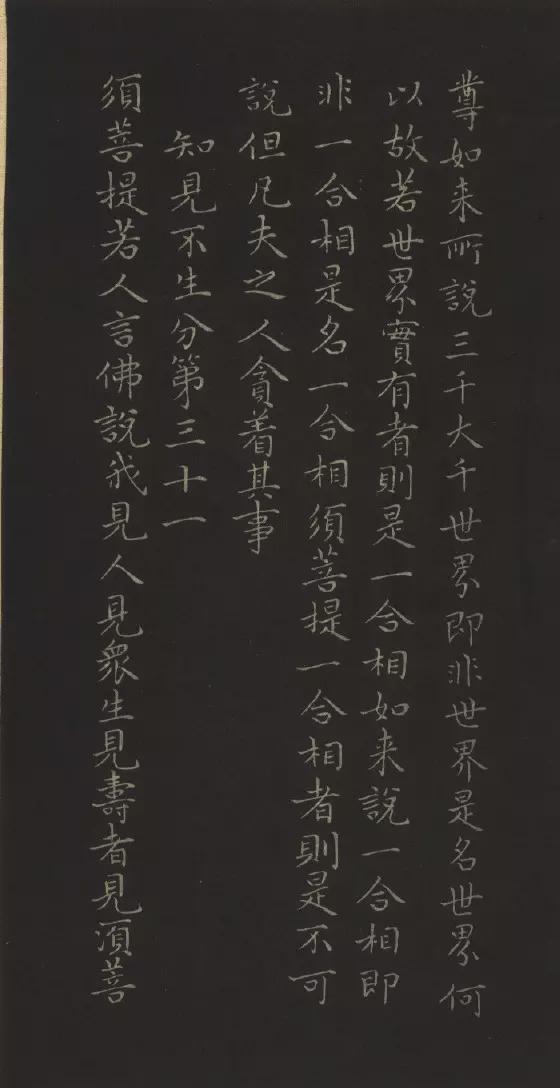 尊如来所說三千大千世界即非世界是名世界何
以故若世界實有者則是一合相如来說一合相即
非一合相是名一合相須菩提一合相者則是不可
說但凡夫之人貪着其事
知見不生分第三十一
須菩提若人言佛說我見人見衆生見壽者見須菩